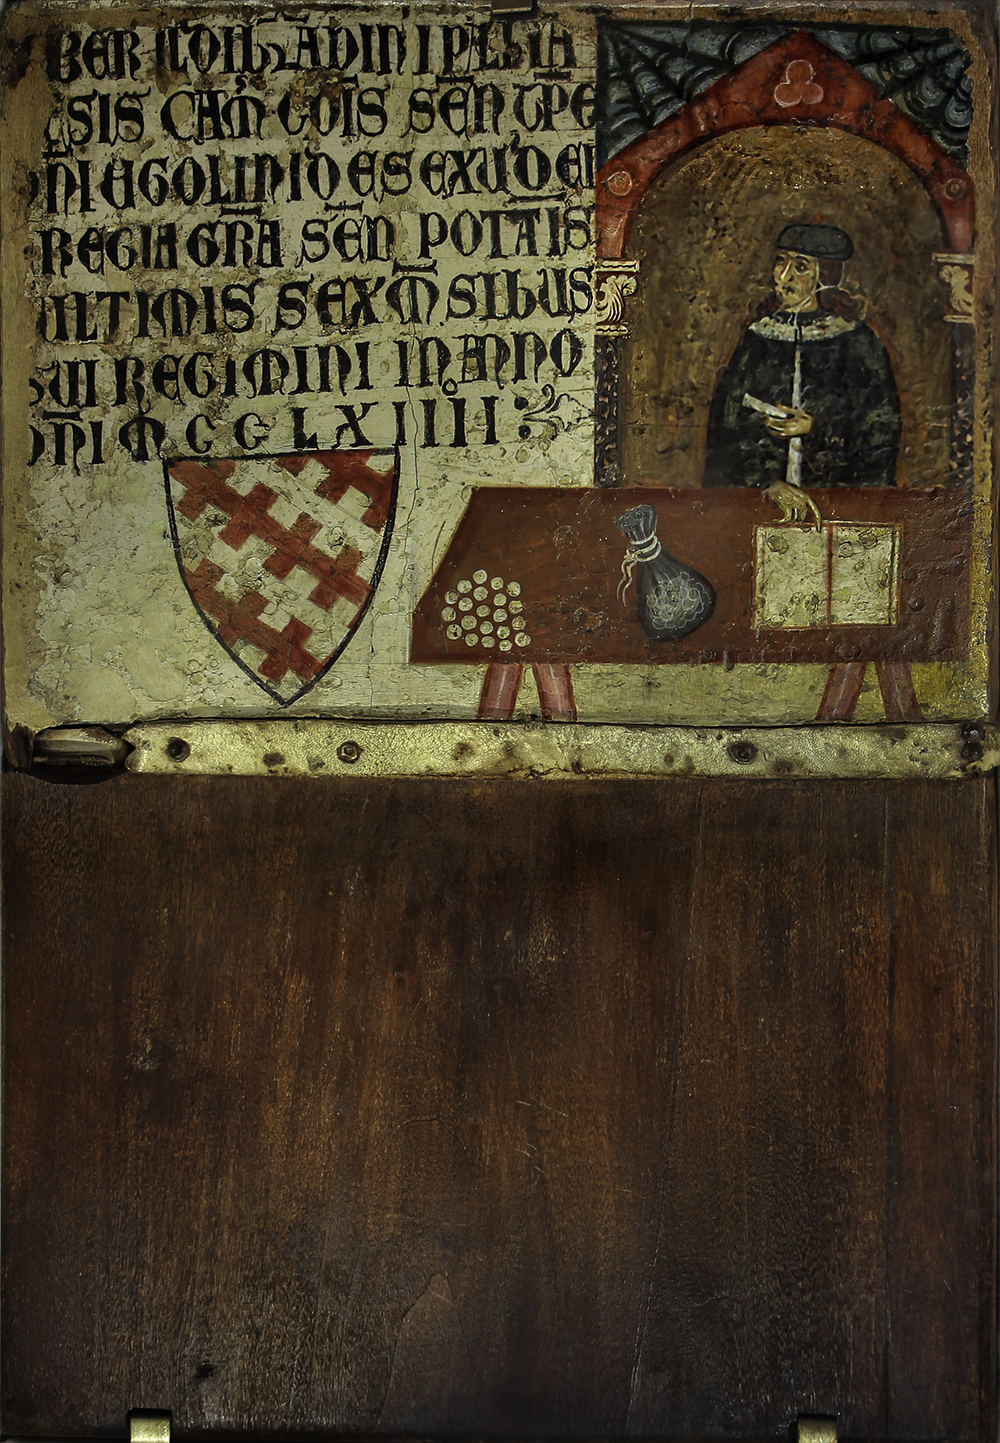 BER ILDIBRĀDINI PALLIA
SIS CAM̄ COĪS SEÑ TP̄E
ÑI UGOLINI D̄ ESEXU D̄EI
REGIA GR̄A SEÑ POTTĀIS
ULTIMIS SEX M̄SIBUS
SUI REGIMINI IN ANNO
DÑI M CC LXIIII